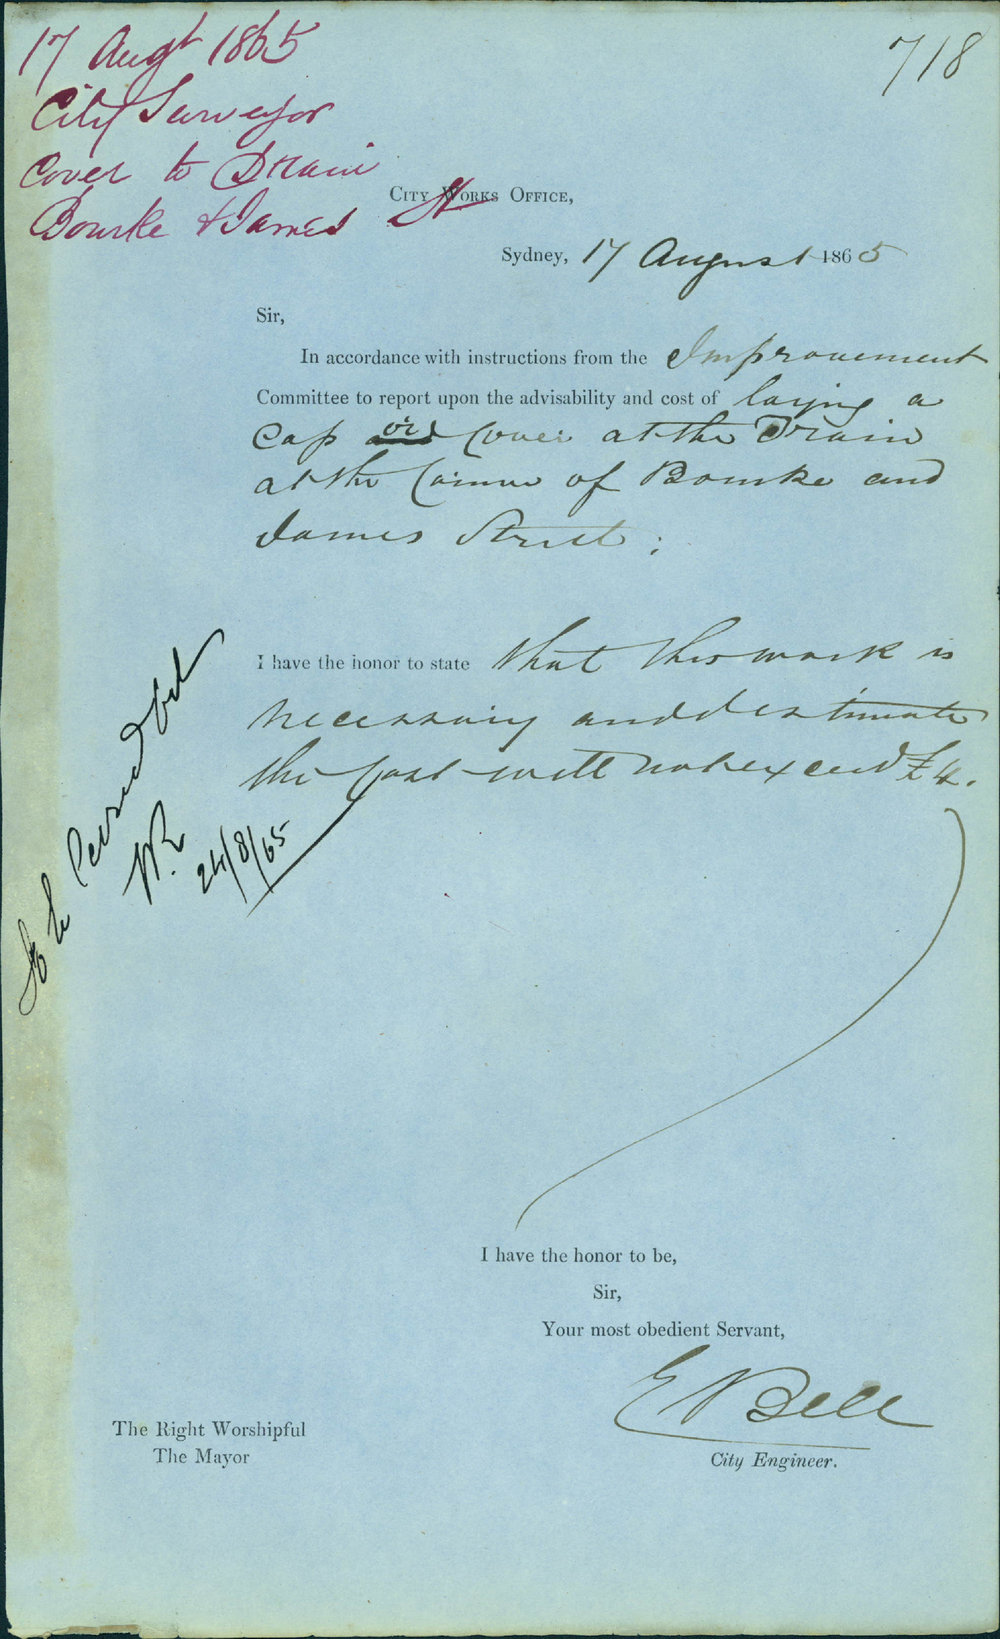 17 Augt 1865
City Surveyor
Cover to Drain
Bourke & James St
718
CITY WORKS OFFICE,
Sydney, 17 August 1865
Sir,
In accordance with instructions from the Improvement
Committee to report upon the advisability and cost of laying a
Cap or Cover at the Drain
at the Corner of Bourke and
James Street:
I have the honor to state that this work is
necessary and estimate
the Cost will not exceed £4.
To be
24/8/65
I have the honor to be,
Sir,
Your most obedient Servant,
E Bell
City Engineer.
The Right Worshipful
The Mayor